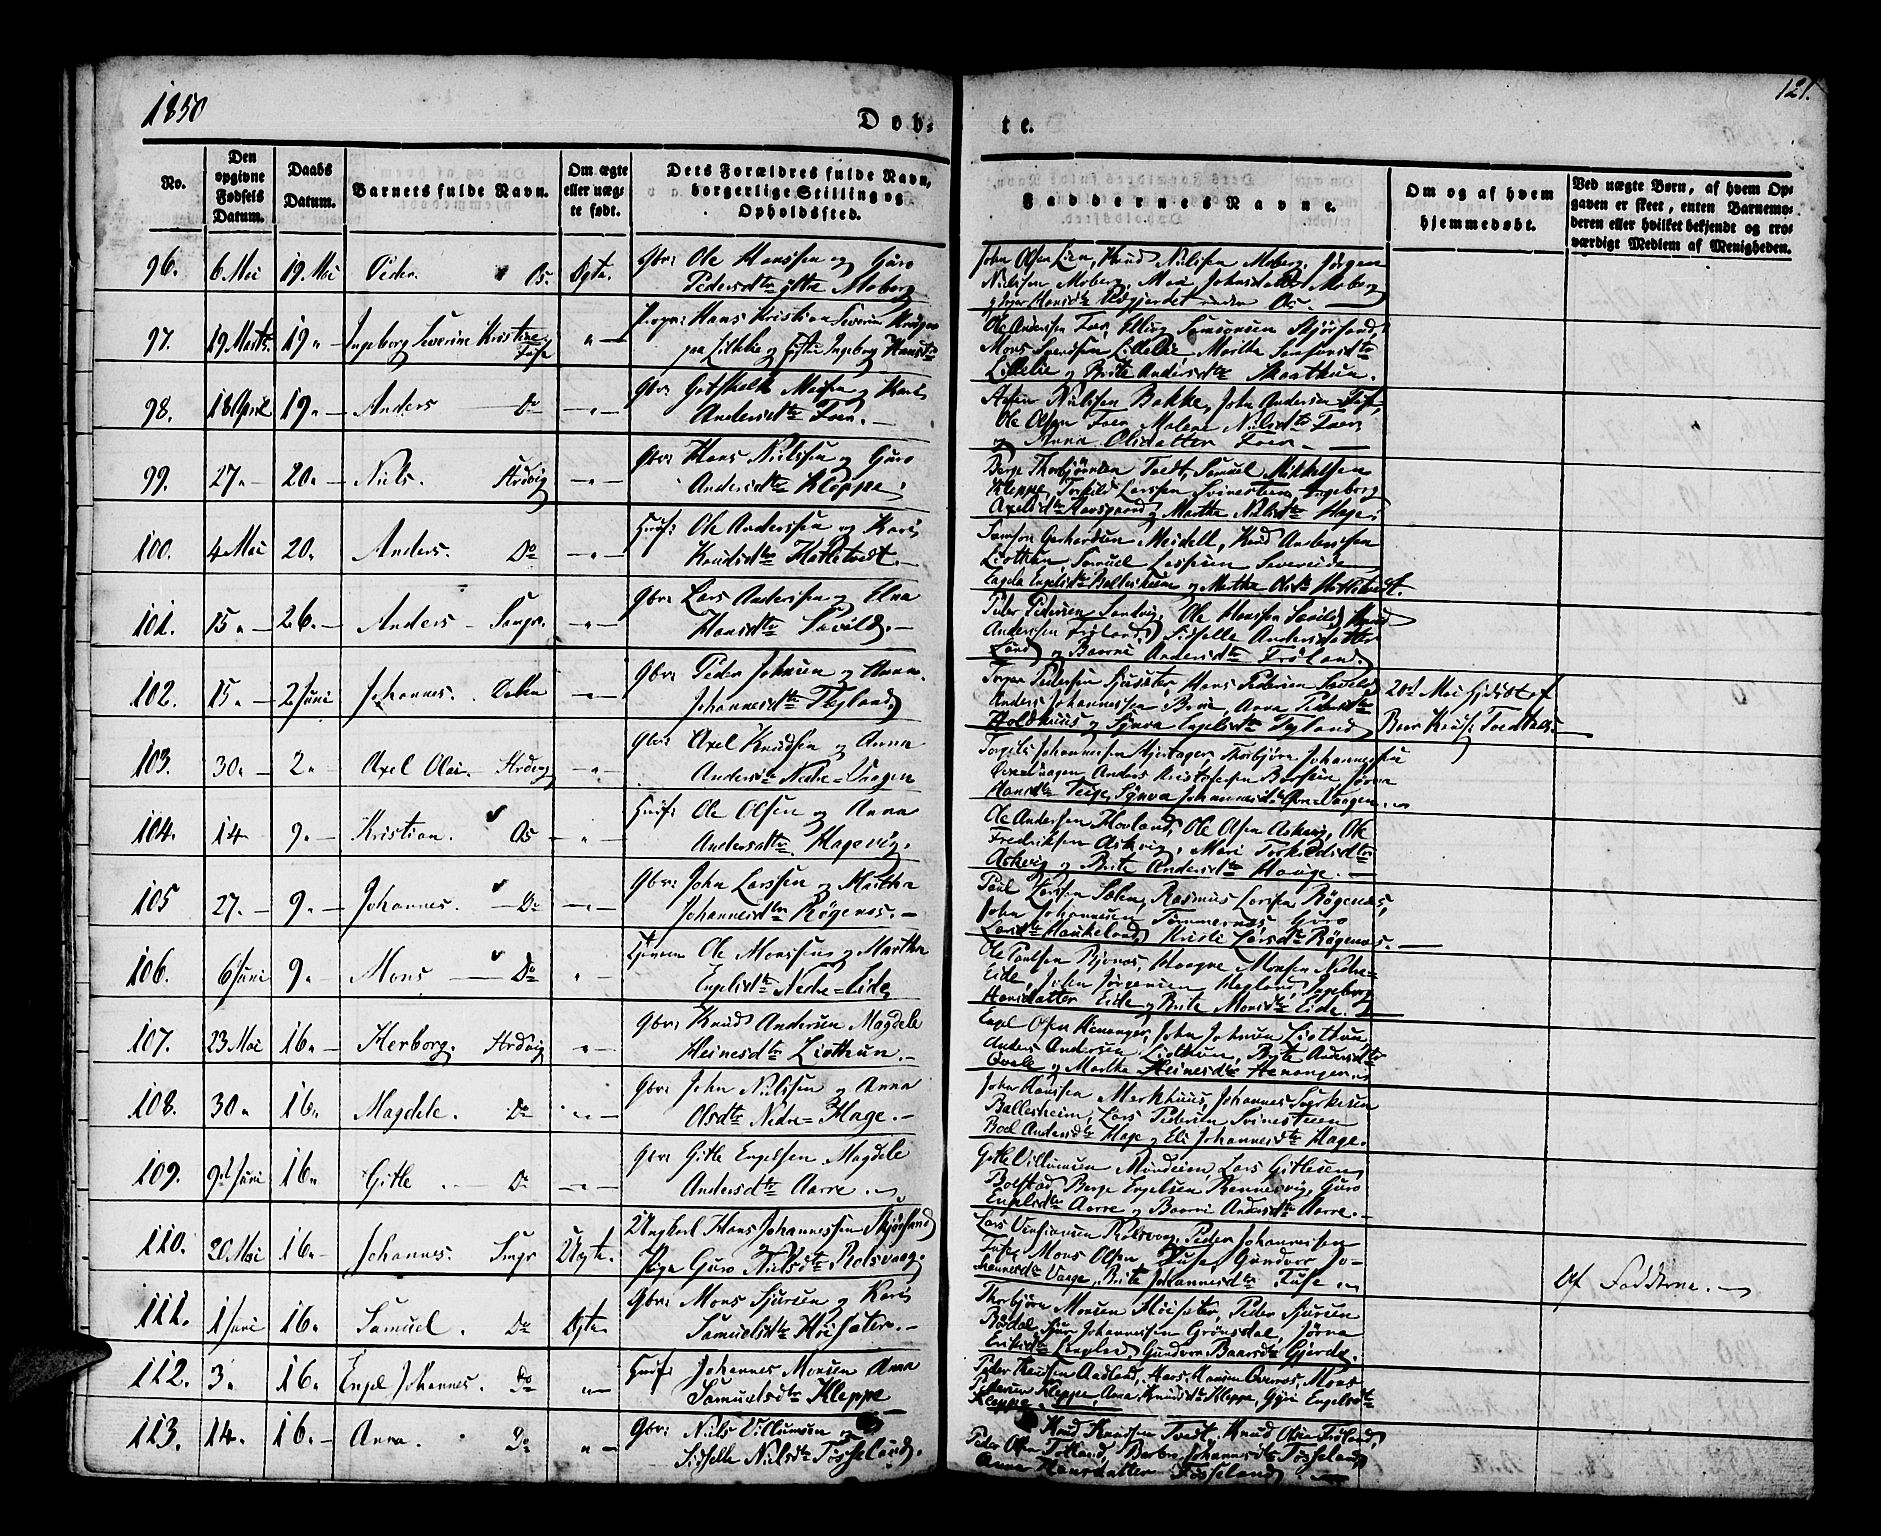 1850
121.
Døb-
te.
No.
Den opgivne Fødsels Datum.
Daabs Datum.
Barnets fulde Navn.
Om ægte eller uægte født.
Dets Forældres fulde Navn, borgerlige Stilling og Opholdssted.
Faddernes Navne.
Om og af hvem hjemmedøbt.
Ved uægte Børn, af hvem Opgaven er skeet, enten Barnemoderen eller hvilket bekjendt og troværdigt Medlem af Menigheden.
96. 6 Mai 19. Mai Peder Os. Ægte. Gbr: Ole Hanssen og Guro
Pedersdtr ytre Moberg
John Olsen Lien, Knud Nielsen Moberg, Jørgen
Nielsen Moberg, Mari Johnsdtr Moberg
97. 19 Marts 19 " Ingeborg Severine Kristine Fuse "
Hans Kristian Severin
Ingeborg Hansdtr
Ole Andersen Foer, Elling Samsonsen Skjørsand,
Mons Svendsen Lillelie, Martha Samsonsdtr
Lillelie og Brite Andersdtr
98. 18 April 19 " Anders Do " Gbr: Gotskalk Monsen og Kari
Andersdtr Foer.
Nielsen Bakke, John Andersen Fuse,
Ole Olsen Foer, Malene Nielsdtr Foer
og Anna Olsdatter Foer.
99. 27 " 20 " Niels. Strdvig " Gbr: Hans Nielsen og Guro
Andersdtr Kleppe.
Berge Thorbjørnsen Tvedt, Samuel Mikkelsen
Kleppe, Torkild Larssen Svinesteen, Ingeborg
Axelsdtr Havsgaard og Martha Nielsdtr Hage.
100. 4 Mai 20. Anders. Do " Husf: Ole Anderssen og Kari
Knudsdtr Hatletvedt.
Samson Gerhardsen Meidell, Knud Anderssen
Liothun, Samuel Larssen Sævereide
Engelsdtr Ballesheim og Martha Olsdtr Hatletvedt.
101. 15 " 26 " Anders Sungr. " Gbr: Lars Anderssen og Elna
Hansdtr Sævild.
Peder Pedersen Sandvig, Ole Hanssen Sævild, Knud
Anderssen Frøland, Sidselle Andersdatter
Lund og Baarni Andersdtr Frøland.
102. 15 " 2 Juni Johannes. Do " Gbr: Peder Johnsen og Anna
Johannesdtr Tegland
Pedersen, Hans Pedersen Sævild,
Anders Johannessen, Anna Pedersdtr
Holdhuus og Synva Engelsdtr Tegland
20d Mai hjdøbt af
103. 30 " 2 " Axel Olai. Strdvig " Gbr: Axel Knudsen og Anna
Andersdtr Nedre-Vaagen
Torgils Johannessen Hjertager, Thorbjørn Johannessen
Øvrevaagen, Anders Kristofersen, Jørna
Hansdtr Teige, Synva Johannesdtr Øvre-Vaagen.
104. 14 9 " Kristian. Os " Husf: Ole Olsen og Anna
Andersdtr Hagevig.
Ole Andersen Hovland, Ole Olsen Askvig, Ole
Fredriksen Askvig, Mari Torkildsdtr
Askvig og Brite Andersdtr Hauge.
105 27. 9 " Johannes. Do " Gbr: John Larssen og Martha
Johannesdtr Røgenes.
Poul Larsen Solem, Rasmus Larsen Røgenes,
John Johannesen Tømmernes, Guro
Larsdtr Haukeland, Kristi Larsdtr Røgenes.
106. 6 Juni 9 " Mons Do " Ole Monssen og Martha
Engelsdtr Nedre-Eide
Ole Poulsen Bjønnes, Haagne Monsen Nedre-
Eide, John Jørgensen Hegland, Ingeborg
Hansdatter Eide og Brite Monsdtr Eide.
107. 23 Mai 16 " Herborg. Strdvig " Gbr: Knud Andersen Magdele
Heinesdtr Liothun.
Engel Olsen Henanger, John Johnsen Liothun,
Anders Andersen Liothun, Brite Andersdtr
og Martha Heinesdtr Henanger
108. 30 " 16 " Magdele. Do " Gbr: John Nielsen og Anna
Olsdtr Nedre-Hage.
John Hansen Markhuus, Johannes
Ballesheim, Lars Pedersen Svinesteen
Boel Andersdtr Hage og Eli Johannesdtr Hage.
109. 9d Juni 16 " Gitle Do " Gbr: Gitle Engelsen Magdele
Andersdtr Aarre.
Gitle Villumsen Mundeim, Lars Gitlesen
Bolstad, Berge Engelsen Rennesvig, Guro
Engelsdtr Aarre og Baarni Andersdtr Aarre.
110. 20 Mai 16 " Johannes. Sungr Uægte. Ungkarl Hans Johannessen Skjørsand
Pige Guro Nielsdtr Rolsvaag.
Lars Rolsvaag, Peder Johannessen
Fuse, Mons Olsen Fuse, Gundvor Jo-
hannesdtr Vaage, Brite Johannesdtr Fuse
Af Fadderne.
111. 1 Juni 16 " Samuel. Do Ægte. Gbr: Mons Sjursen og Kari
Samuelsdtr Høisæter.
Thorbjørn Monsen Høisæter, Peder Sjursen
Bødal, Sjur Johannessen Grønsdal, Jørna
Eriksdtr, Gundvra Baarsdtr Gjerde.
112. 3 " 16 " Engel Johannes. Do " Husf: Johannes Monsen Anna
Samuelsdtr Kleppe
Peder Aadland, Hans Hansen, Mons
Pedersen Kleppe, Anna Knudsdtr Kleppe, Guri Engelsdtr
Kleppe.
113. 14. 16 " Anna. Do " Gbr: Niels Villumsen og
Sidselle Nielsdtr Tøsseland.
Knud Knudsen Tvedt, Knud Olsen Frøland,
Peder Olsen Frøland, Barbra Johannesdtr Tøsseland
Anna Hansdatter Tøsseland.